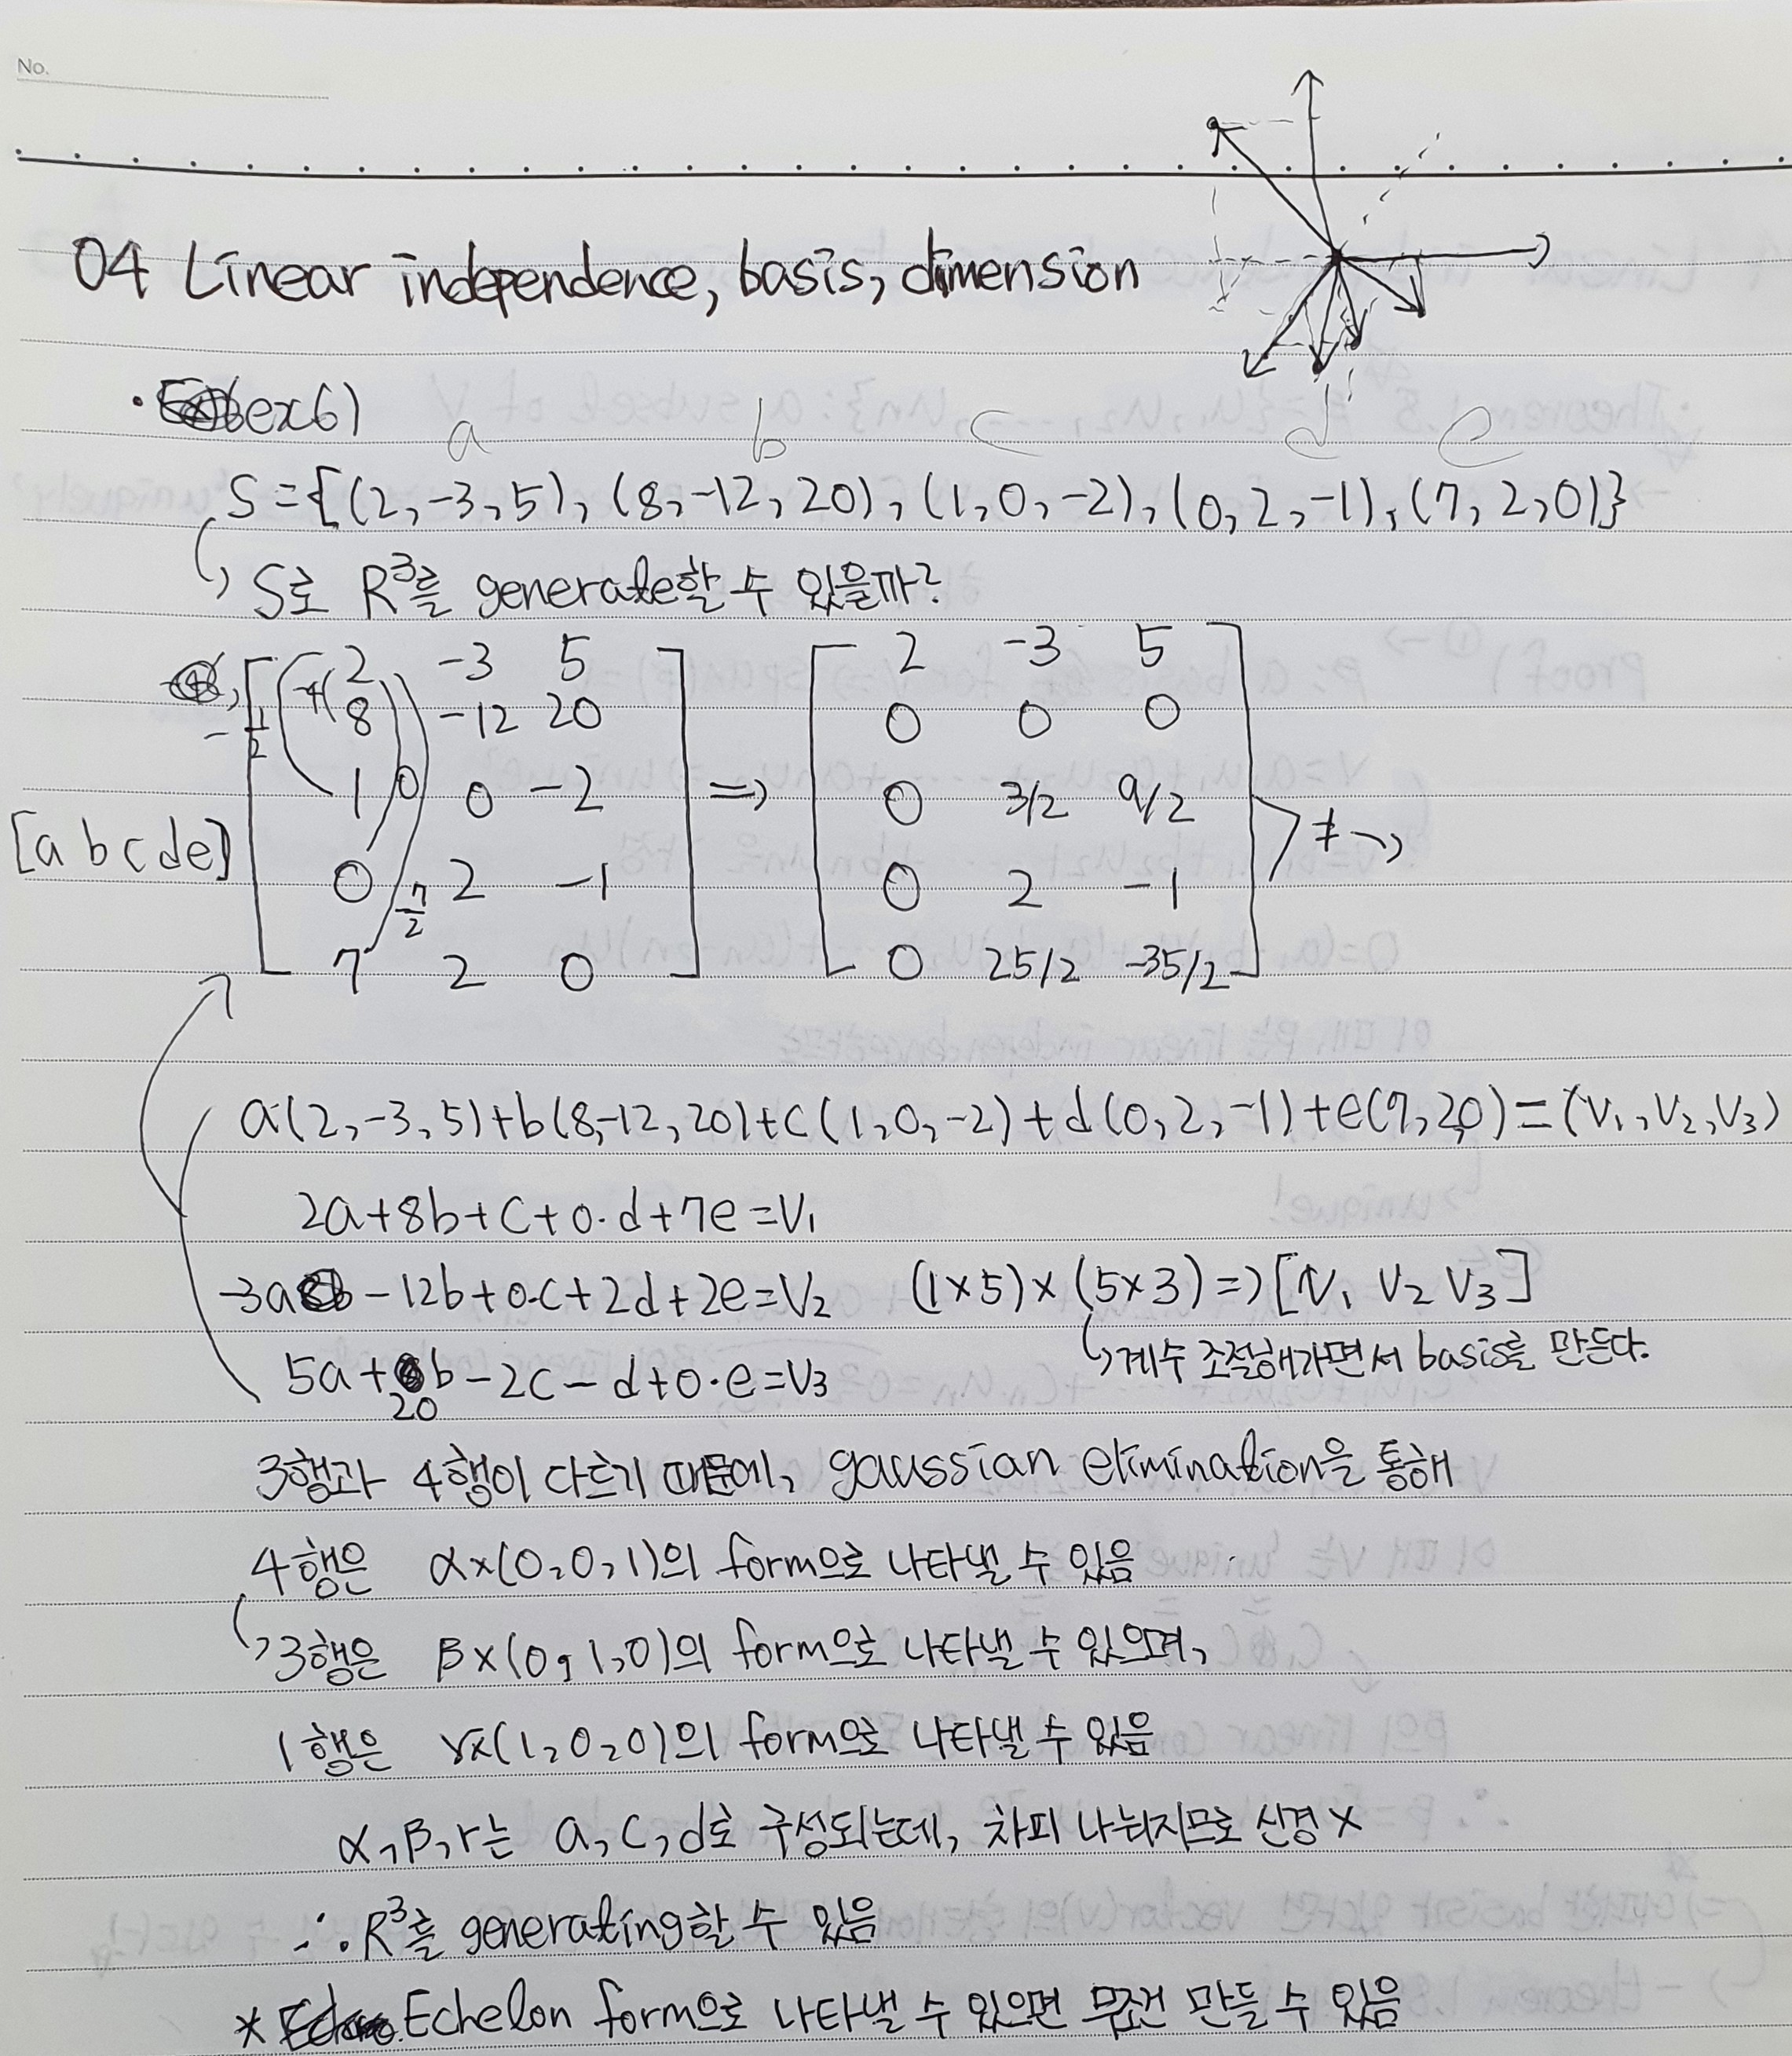 No.
04 Linear independence, basis, dimension
· ex6)
a b c d e
S={(2,-3,5),(8,-12,20),(1,0,-2),(0,2,-1),(7,2,0)}
S로 R³를 generate할 수 있을까?
[a b c d e] [2 -3 5 ⇒ [2 -3 5
8 -12 20 0 0 0
1 0 -2 0 3/2 9/2 > ≠
0 2 -1 0 2 -1
7 2 0] 0 25/2 -35/2]
a(2,-3,5)+b(8,-12,20)+c(1,0,-2)+d(0,2,-1)+e(7,2,0)=(v₁,v₂,v₃)
2a+8b+c+0·d+7e=v₁
-3a-12b+0·c+2d+2e=v₂ (1×5)×(5×3)⇒[v₁ v₂ v₃]
계수 조절해가면서 basis를 만든다.
5a+20b-2c-d+0·e=v₃
3행과 4행이 다르기 때문에, gaussian elimination을 통해
4행은 α×(0,0,1)의 form으로 나타낼 수 있음
3행은 β×(0,1,0)의 form으로 나타낼 수 있으며,
1행은 γ×(1,0,0)의 form으로 나타낼 수 있음
α,β,r는 a,c,d로 구성되는데, 차피 나눠지므로 신경 X
∴ R³를 generating할 수 있음
* Echelon form으로 나타낼 수 있으면 무조건 만들 수 있음